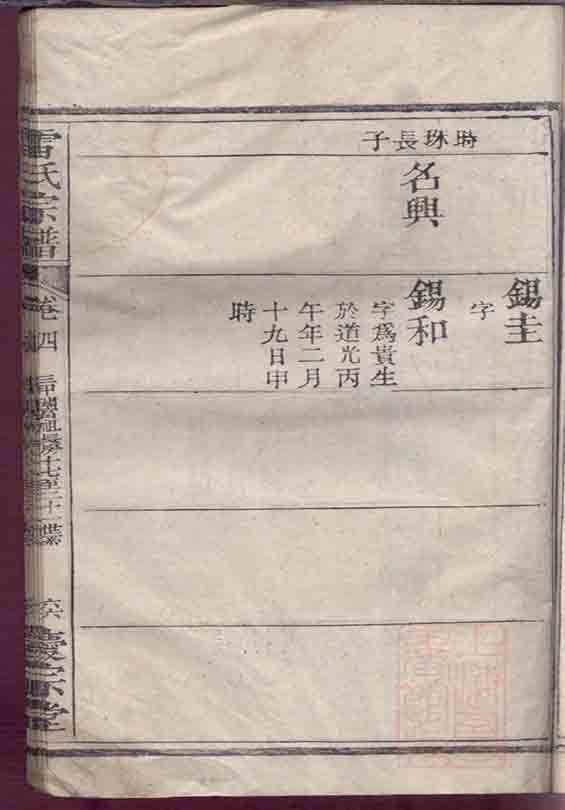 時珠長子
名興
錫圭
字
錫和
字為貴生
於道光丙
午年二月
十九日申
時
雷氏宗譜
卷四
慶宗堂